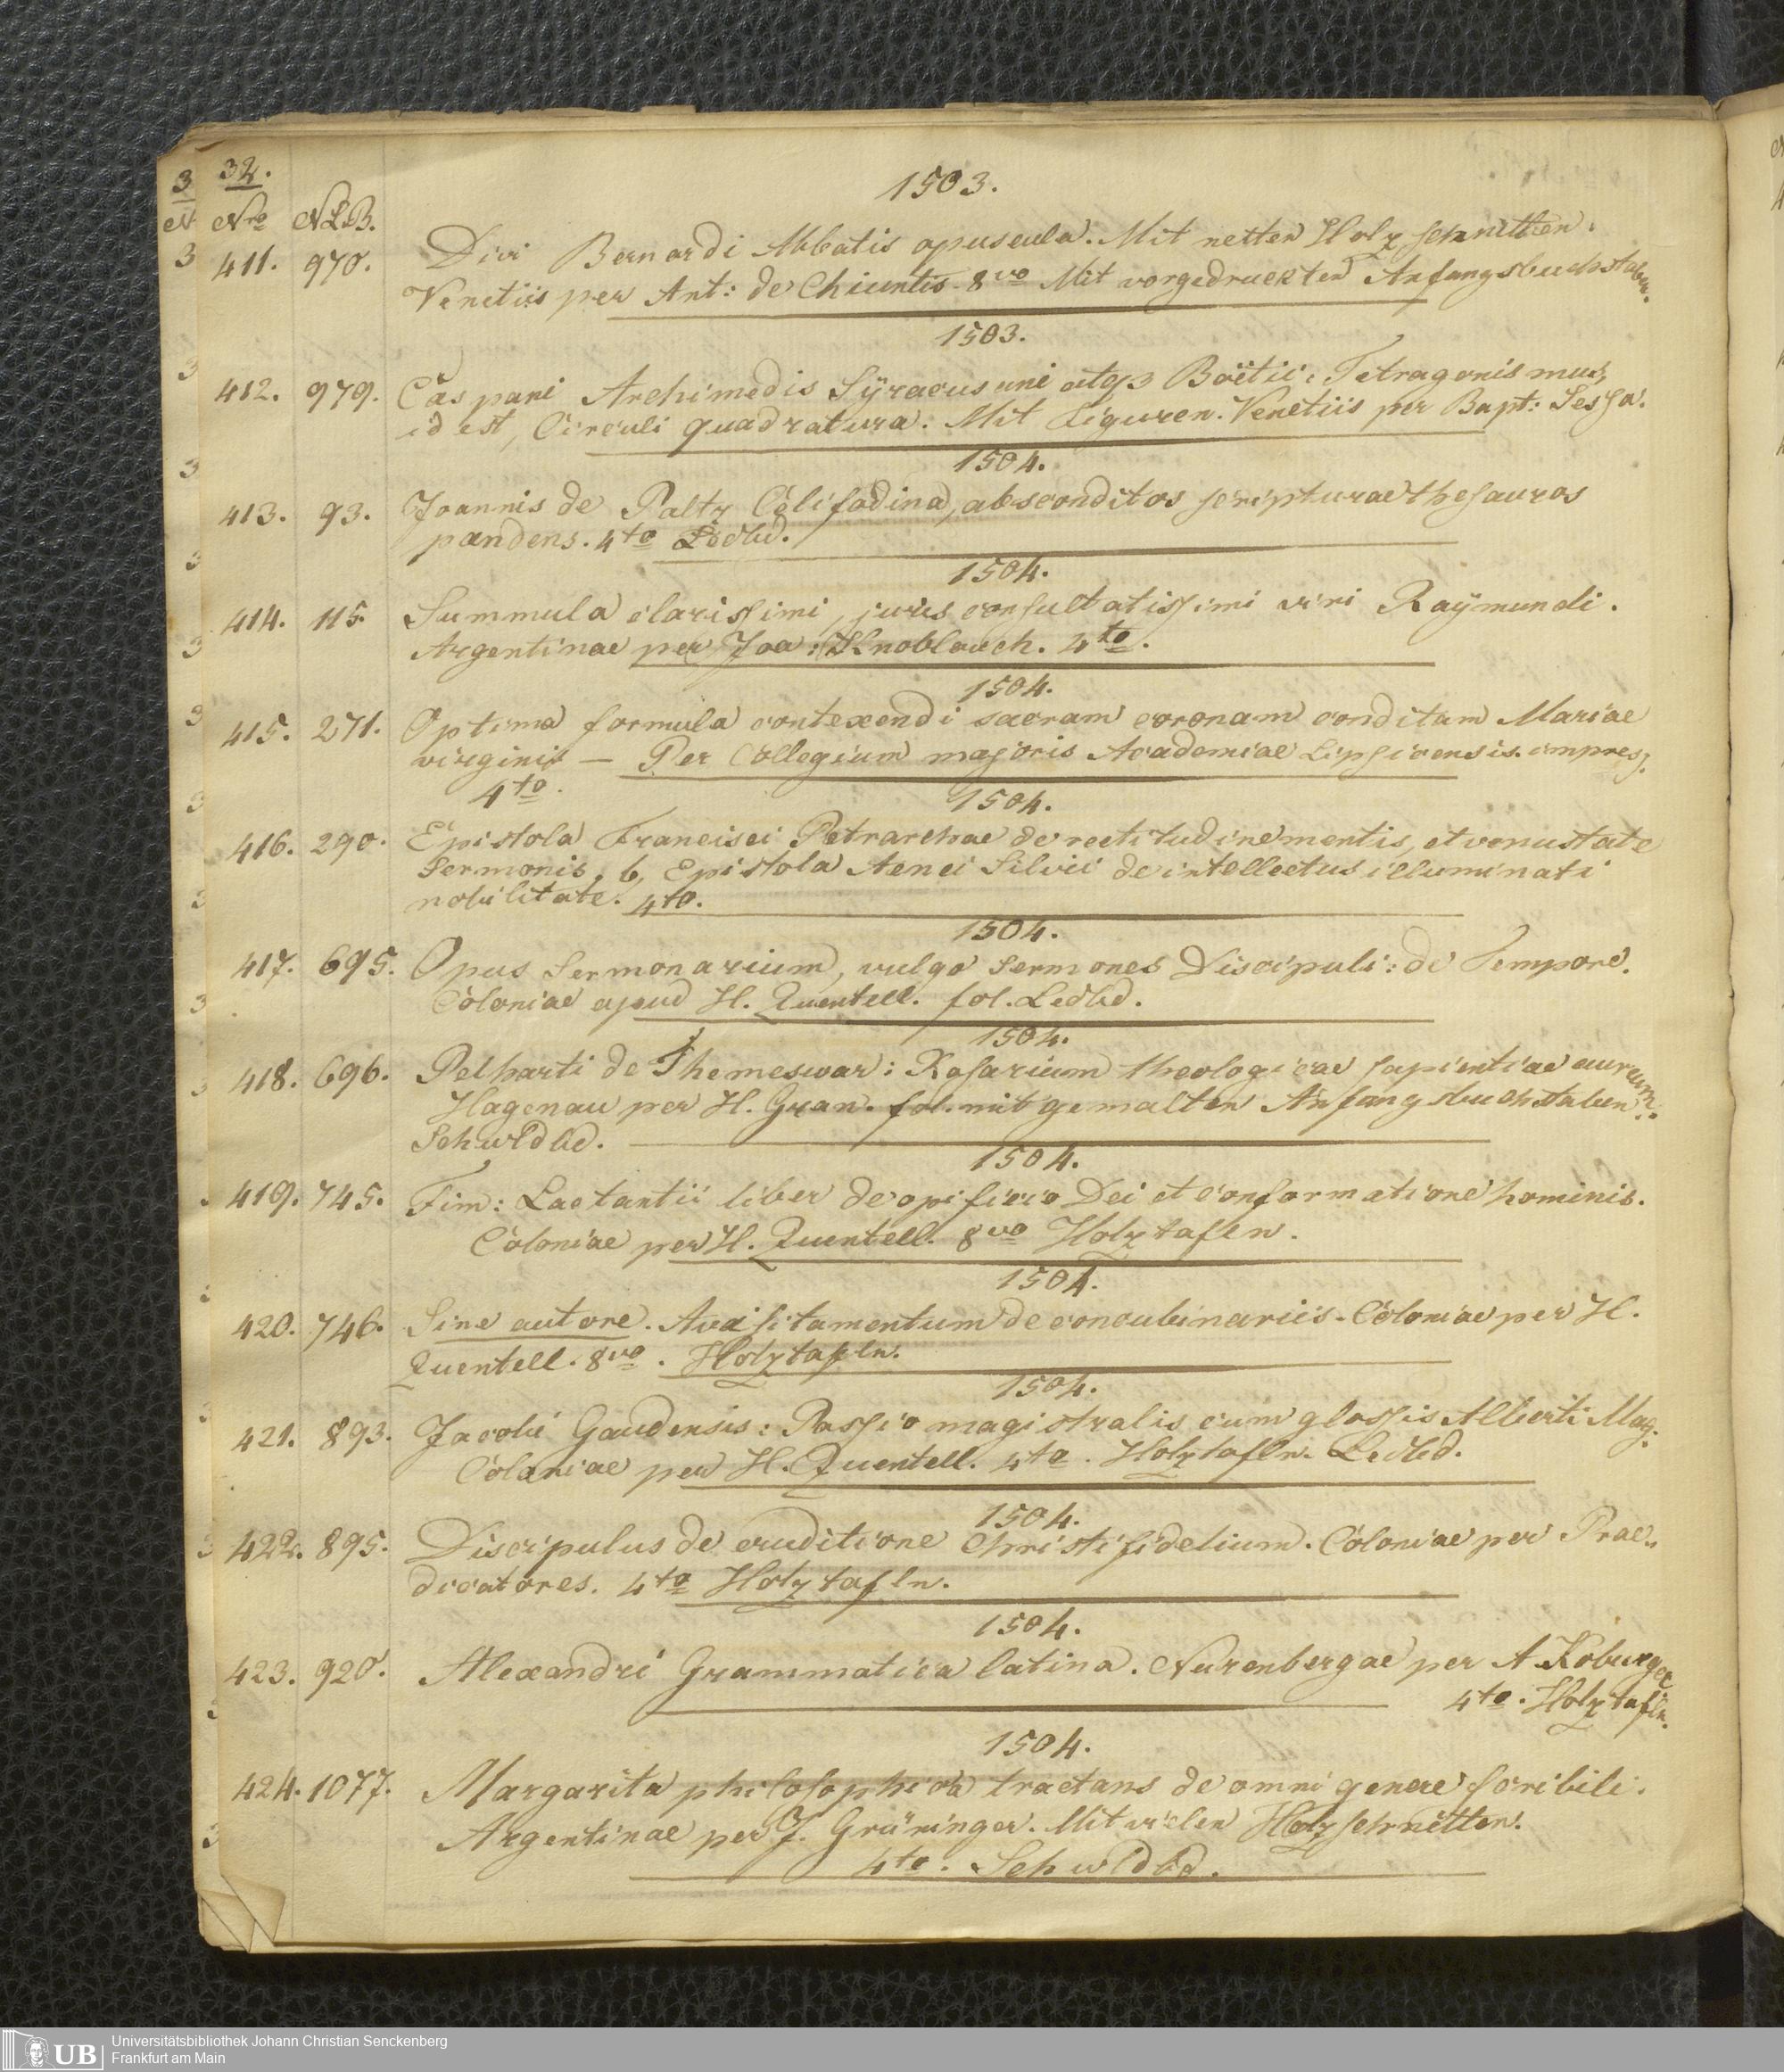 32.
1503.
Nro NLB.
411. 970. Divi Bernardi Abbatis opuscula. Mit netten Holzschnitten.
Venetiis per Ant: de Chiuntis. 8vo Mit vorgedruckten Anfangsbuchstaben.
1503.
412. 979. Caspani Archimedis Sÿracusani atq3 Boëtii: Tetragonismus,
id est, Circuli quadratura. Mit Figuren. Venetiis per Bapt: Sessa.
1504.
413. 93. Joannis de Paltz Celifodina, absconditos scripturae thesauros
pandens. 4to Ledbd.
1504.
414. 115. Summula clarissimi, juris consultatissimi viri Raÿmundi.
Argentinae per Joa: Knoblauch. 4to.
1504.
415. 271. Optima formula contexendi sacram coronam conditam Mariae
virginis — Per Collegium majoris Academiae Lipsicensis. impress.
4to.
1504.
416. 290. Epistola Francisci Petrarchae de rectitudine mentis, et venustate
Sermonis. b, Epistola Aenei Silvii de intellectus illuminati
nobilitate. 4to.
1504.
417. 695. Opus Sermonarium, vulgo Sermones Discipuli: de Tempore.
Coloniae apud H. Quentell. fol. Ledbd.
1504.
418. 696. Pelbarti de Themeswar: Rosarium theologicae sapientiae aureum.
Hagenau per H. Gran. fol. mit gemalten Anfangsbuchstaben.
Schwldbd.
1504.
419. 745. Fim: Lactantii liber de opificio Dei et conformatione hominis.
Coloniae per H. Quentell. 8vo Holztafln.
1504.
420. 746. Sine autore. Avisitamentum de concubinariis. Coloniae per H.
Quentell. 8vo. Holztafln.
1504.
421. 893. Jacobi Gaudensis: Passio magistralis cum glossis Alberti Mag:
Coloniae per H. Quentell. 4to. Holztafln. Ledbd.
1504.
422. 895. Discipulus de eruditione Christifidelium. Coloniae per Prae„
dicatores. 4to Holztafln.
1504.
423. 920. Alexandri Grammatica latina. Nurenbergae per A Koburger
4to. Holztafln.
1504.
424. 1077. Margarita philosophica tractans de omni genere scribili.
Argentinae per J. Grüninger. Mit vielen Holzschnitten.
4to. Schwldbd.
UB
Universitätsbibliothek Johann Christian Senckenberg
Frankfurt am Main